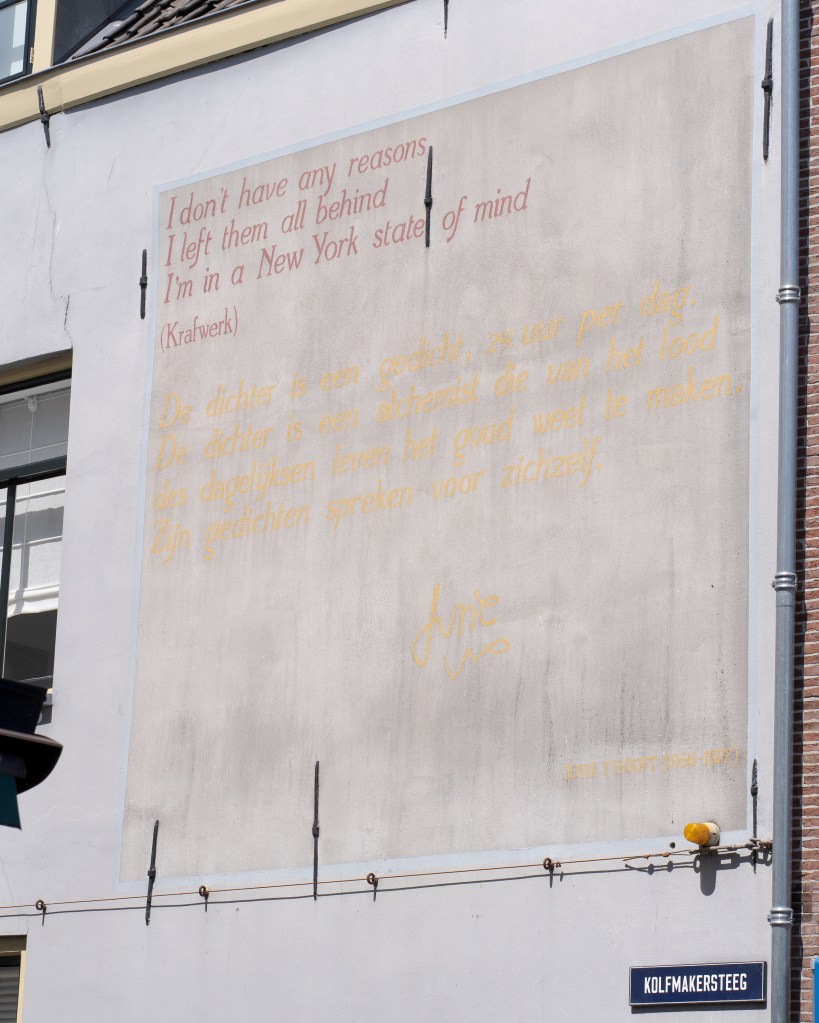 I don't have any reasons
I left them all behind
I'm in a New York state of mind
(Krafwerk)
De dichter is een gedicht, 24 uur per dag.
De dichter is een alchemist die van het lood
des dagelijksen leven het goud weet te maken.
Zijn gedichten spreken voor zichzelf.
KOLFMAKERSTEEG